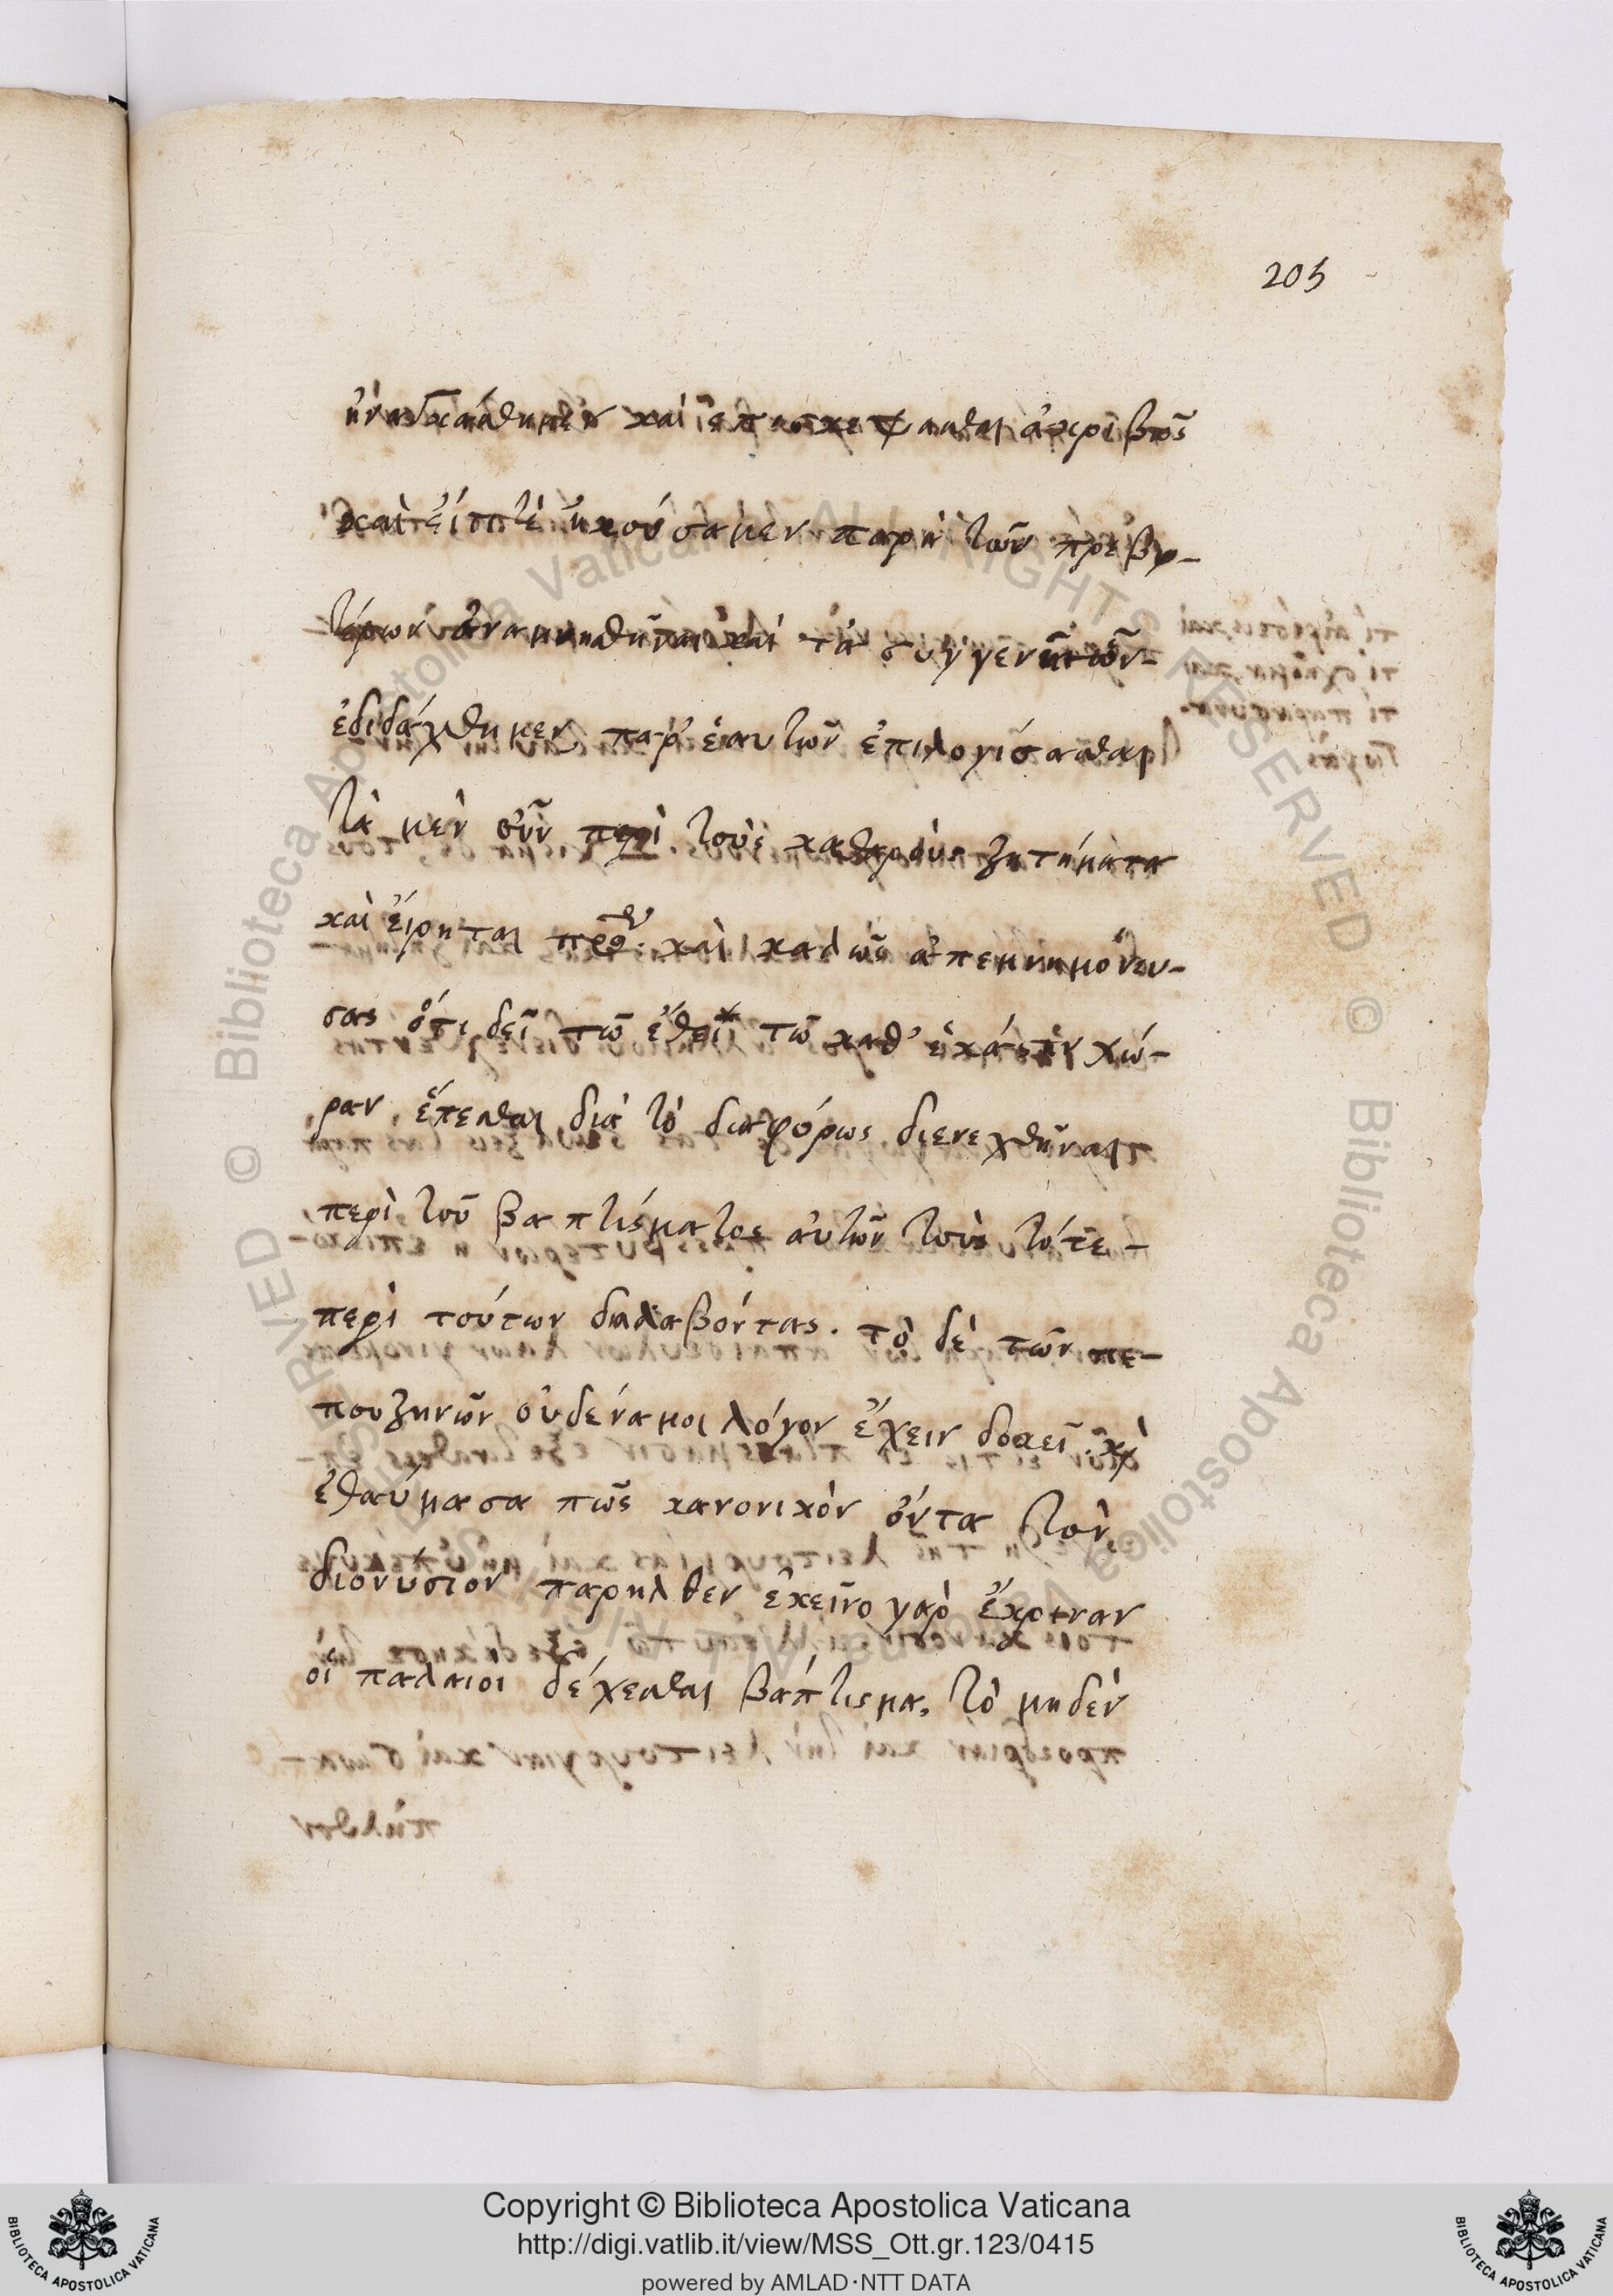 205
ἠναγκάσθημεν καὶ ἐπισκέψασθαι ἀκριβῶς
καὶ εἴ τι τὲ ἠκούσαμεν παρὰ τῶν πρεβυ-
τέρων ἀναμνησθῆναι καὶ τὰ συγγενῆ ὧν
ἐδιδάχθημεν παρ' ἑαυτῶν ἐπιλογίσασθαι
Τὰ μὲν οὖν περὶ τοὺς καθαροὺς ζητήματα
καὶ εἴρηται πρότερον καὶ καλῶς ἀπεμνημόνευ-
σας ὅτι δεῖ τῶ ἔθει τῶ καθ' ἑκάστην χώ-
ραν ἕπεσθαι διὰ τὸ διαφόρως διενεχθῆναι
περὶ τοῦ βαπτίσματος αὐτῶν τοὺς τότε
περὶ τούτων διαλαβόντας. τὸ δὲ τῶν πε-
πουζηνῶν οὐδένα μοι λόγον ἔχειν δοκεῖ. καὶ
ἐθαύμασα πῶς κανονικὸν ὄντα τὸν
διονύσιον παρῆλθεν ἐκεῖνο γὰρ ἔκριναν
οἱ παλαιοὶ δέχεσθαι βάπτισμα, τὸ μηδὲν
Copyright © Biblioteca Apostolica Vaticana
http://digi.vatlib.it/view/MSS_Ott.gr.123/0415
powered by AMLAD·NTT DATA
BIBLIOTECA APOSTOLICA VATICANA
BIBLIOTECA APOSTOLICA VATICANA